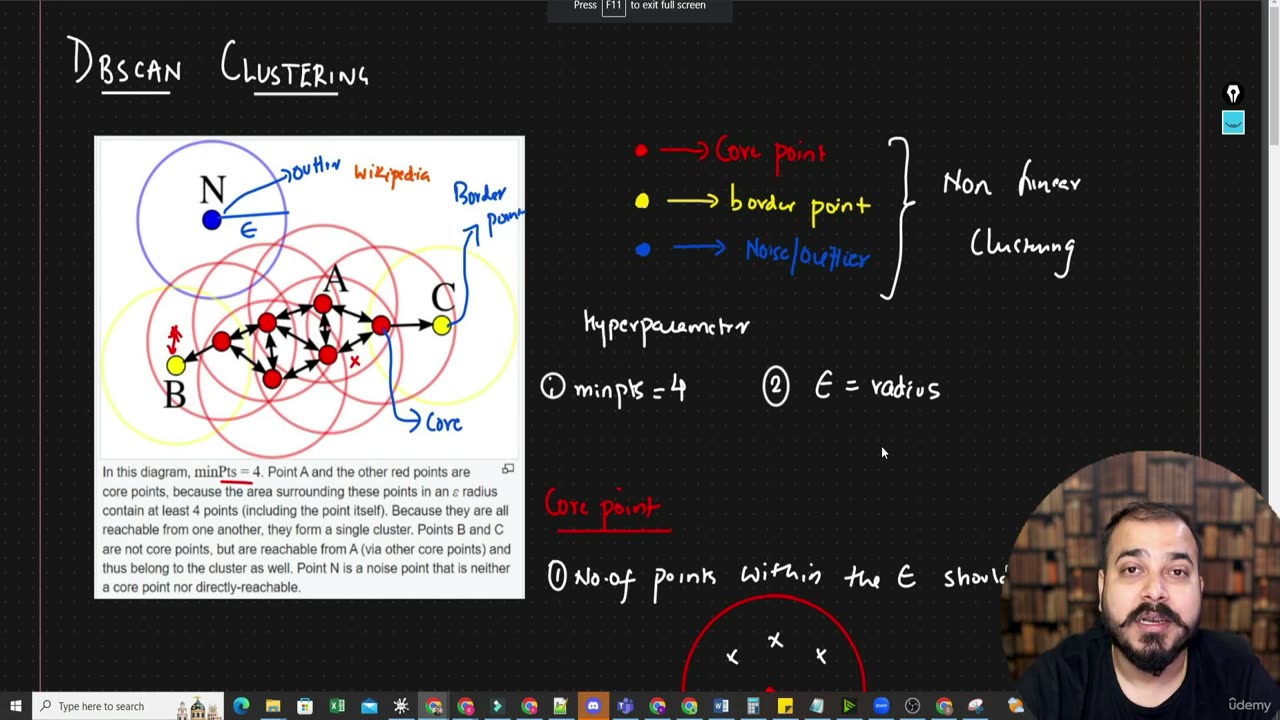 Press F11 to exit full screen
DBSCAN CLUSTERING
N
outlier
wikipedia
Border
point
ϵ
A
C
B
x
Core
In this diagram, minPts = 4. Point A and the other red points are
core points, because the area surrounding these points in an ε radius
contain at least 4 points (including the point itself). Because they are all
reachable from one another, they form a single cluster. Points B and C
are not core points, but are reachable from A (via other core points) and
thus belong to the cluster as well. Point N is a noise point that is neither
a core point nor directly-reachable.
→ Core point
→ border point
→ Noise/Outlier
Non linear
Clustering
Hyperparameter
① minpts = 4
② ϵ = radius
Core point
① No. of points within the ϵ should
x x x
Type here to search
ûdemy